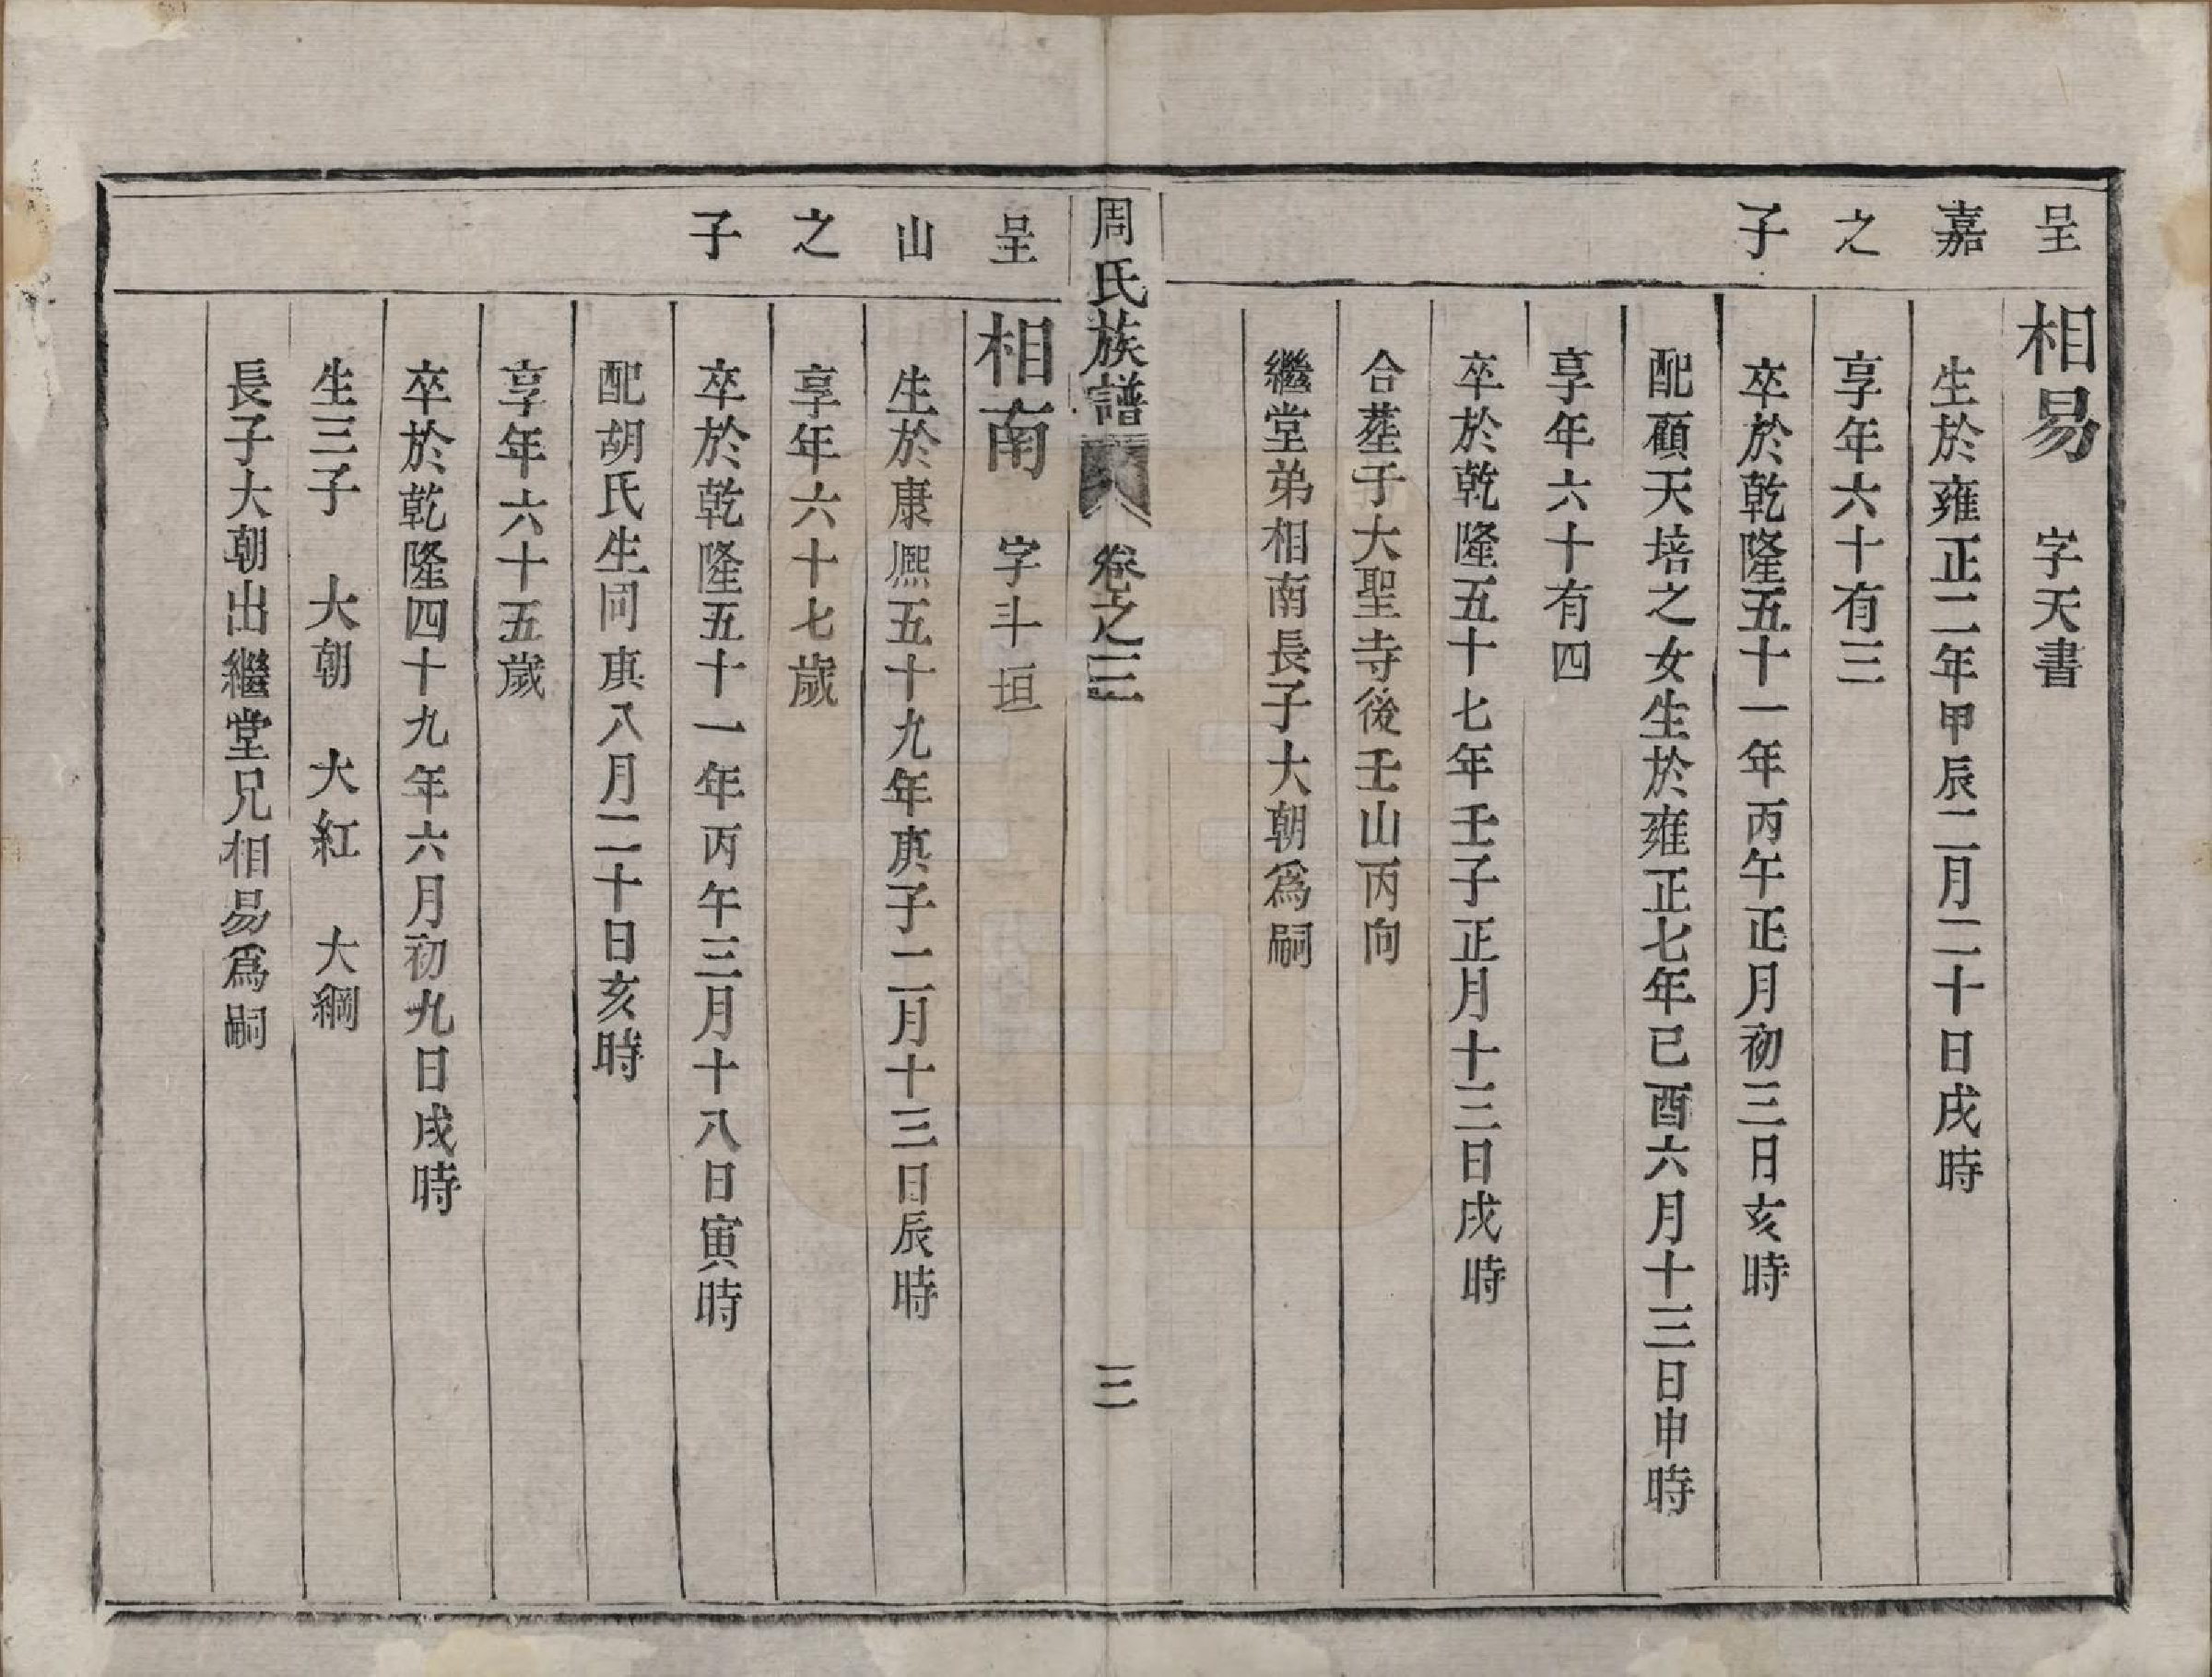 呈嘉之子
相易 字天書
生於雍正二年甲辰二月二十日戌時
享年六十有三
卒於乾隆五十一年丙午正月初三日亥時
配顧天培之女生於雍正七年已酉六月十三日申時
享年六十有四
卒於乾隆五十七年壬子正月十三日戌時
合塟于大聖寺後壬山丙向
繼堂弟相南長子大朝爲嗣
周氏族譜 卷之三 三
呈山之子
相南 字斗垣
生於康熈五十九年庚子二月十三日辰時
享年六十七歲
卒於乾隆五十一年丙午三月十八日寅時
配胡氏生同庚八月二十日亥時
享年六十五歲
卒於乾隆四十九年六月初九日戌時
生三子 大朝 大紅 大綱
長子大朝出繼堂兄相易爲嗣